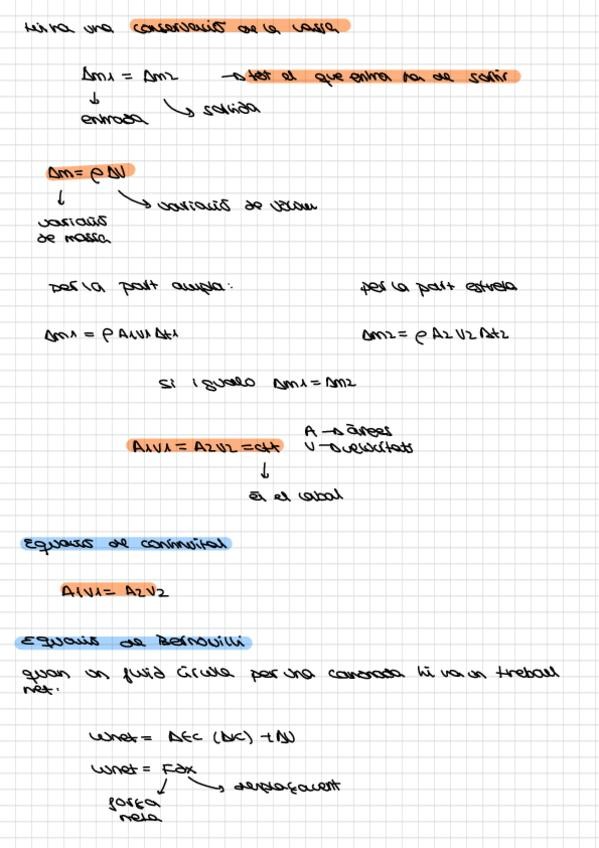 hi ha una conservació de la massa
Δm1 = Δm2 → tot el que entra ha de sortir
entrada sortida
Δm = ρ ΔV
variació de volum
variació
de massa
per la part ampla: per la part estreta
Δm1 = ρ A1V1 Δt1 Δm2 = ρ A2 V2 Δt2
si igualo Δm1 = Δm2
A → àrees
A1V1 = A2V2 = ctt V → velocitats
És el cabal
Equació de continuitat
A1V1 = A2V2
Equació de Bernouilli
quan un fluid circula per una canonada hi va un treball
net:
Wnet = ΔEc (ΔK) + ΔU
Wnet = FΔx
desplaçament
força
neta